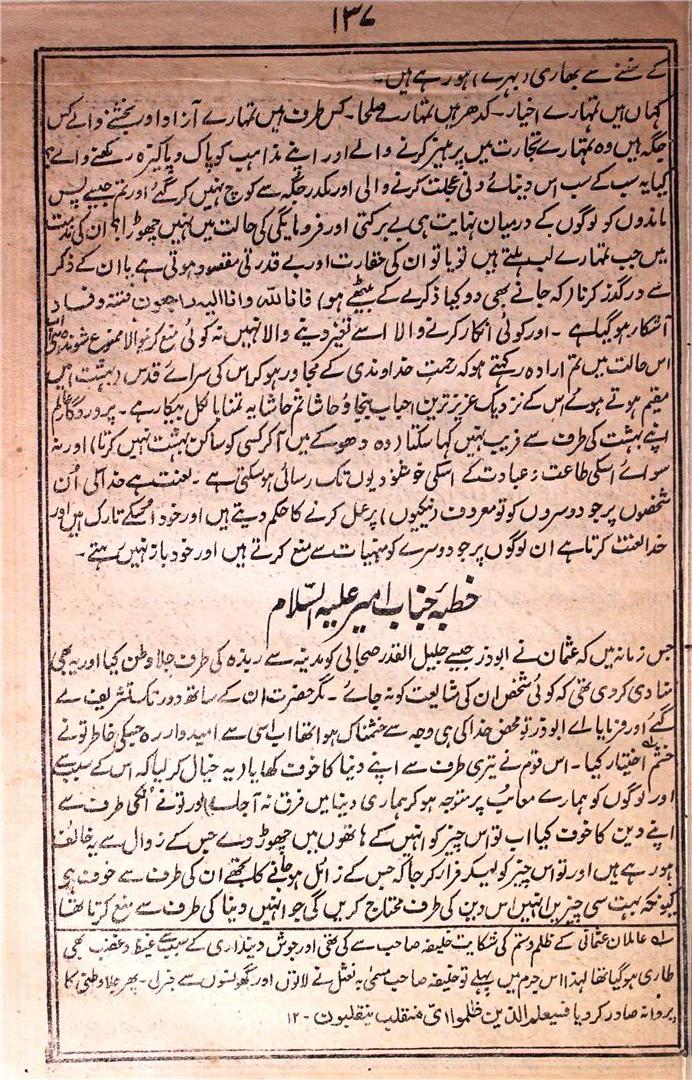 ۱۳۷
کے سننے سے بھاری (بہرے) ہو رہے ہیں۔
کہاں ہیں تمہارے اخیار۔ کدھر ہیں تمہارے صلحا۔ کس طرف ہیں تمہارے آزاد اور بخشنے والے کس
جگہ ہیں وہ تمہارے تجارت میں پرہیز کرنے والے اور اپنے مذاہب کو پاک و پاکیزہ رکھنے والے؟
کیا یہ سب کے سب اس دینائے دنی عجلت کرنے والی اور مکدر جگہ سے کوچ نہیں کر گئے اور تم جیسے پس
ماندوں کو لوگوں کے درمیان نہایت ہی بے برکتی اور فرومایگی کی حالت میں نہیں چھوڑا ان کی مذمت
میں جب تمہارے لب ہلتے ہیں تو یا تو ان کی حقارت اور بے قدرتی مقصود ہوتی ہے یا ان کے ذکر
سے درگذر کرنا (کہ جانے بھی دو کیا ذکر لے کے بیٹھے ہو) فانا للہ وانا الیہ راجعون فتنہ و فساد
آشکار ہو گیا ہے۔ اور کوئی انکار کرنے والا اسے تغیر دینے والا نہیں نہ کوئی منع کرنیوالا ممنوع شوندہ ہی
اس حالت میں تم ارادہ رکھتے ہو کہ رحمت خداوندی کے مجاور ہو کر اس کی سرائے قدس (بہشت) میں
مقیم ہوتے ہوئے اس کے نزدیک عزیز ترین احباب بنجاؤ حاشا ثم حاشا یہ تمنا بالکل بیکار ہے۔ پروردگار عالم
اپنے بہشت کی طرف سے فریب نہیں کھا سکتا (وہ دھوکے میں آ کر کسی کو ساکن بہشت نہیں کرتا) اور نہ
سوائے اسکی طاعت و عبادت کے اسکی خوشنودیوں تک رسائی ہو سکتی ہے۔ لعنت ہے خدا کی اُن
شخصوں پر جو دوسروں کو تو معروف (نیکیوں) پر عمل کرنے کا حکم دیتے ہیں اور خود اسکے تارک ہیں اور
خدا لعنت کرتا ہے ان لوگوں پر جو دوسرے کو منہیات سے منع کرتے ہیں اور خود باز نہیں رہتے۔
خطبۂ جناب امیر علیہ السّلام
جس زمانہ میں کہ عثمان نے ابوذر جیسے جلیل القدر صحابی کو مدینہ سے ربذہ کی طرف جلا وطن کیا اور یہ بھی
منادی کر دی تھی کہ کوئی شخص ان کی مشایعت کو نہ جائے۔ مگر حضرت ان کے ساتھ دور تک تشریف لے
گئے اور فرمایا اے ابوذر تو محض خدا کی ہی وجہ سے خشمناک ہوا تھا اب اسی سے امیدوار رہ جسکی خاطر تو نے
خشم اختیار کیا۔ اس قوم نے تیری طرف سے اپنے دنیا کا خوف کھایا (یہ خیال کر لیا کہ اس کے سبب سے
اور لوگوں کو ہمارے معائب پر متوجہ ہو کر ہماری دنیا میں فرق نہ آ جائے) اور تو نے اُنکی طرف سے
اپنے دین کا خوف کیا اب تو اس چیز کو انہیں کے ہاتھوں میں چھوڑ دے جس کے زوال سے یہ خائف
ہو رہے ہیں اور تو اس چیز کو لیکر فرار کر جا کہ جس کے زائل ہو جانے کا تجھے ان کی طرف سے خوف ہی
کیونکہ بہت سی چیزیں انہیں اس دین کی طرف محتاج کریں گی جو انہیں دینا کی طرف سے منع کرتا تھا
؎ عاملان عثمانی کے ظلم و ستم کی شکایت خلیفہ صاحب سے کی تھی اور جوش دینداری کے سبب سے غیظ و غضب بھی
طاری ہو گیا تھا لہذا اس جرم میں پہلے تو خلیفہ صاحب مسمی بہ نعثل نے لاتوں اور گھونسوں سے خبر لی۔ پھر جلا وطنی کا
پروانہ صادر کر دیا فسیعلم الذین ظلموا ای منقلب ینقلبون۔ ۱۲